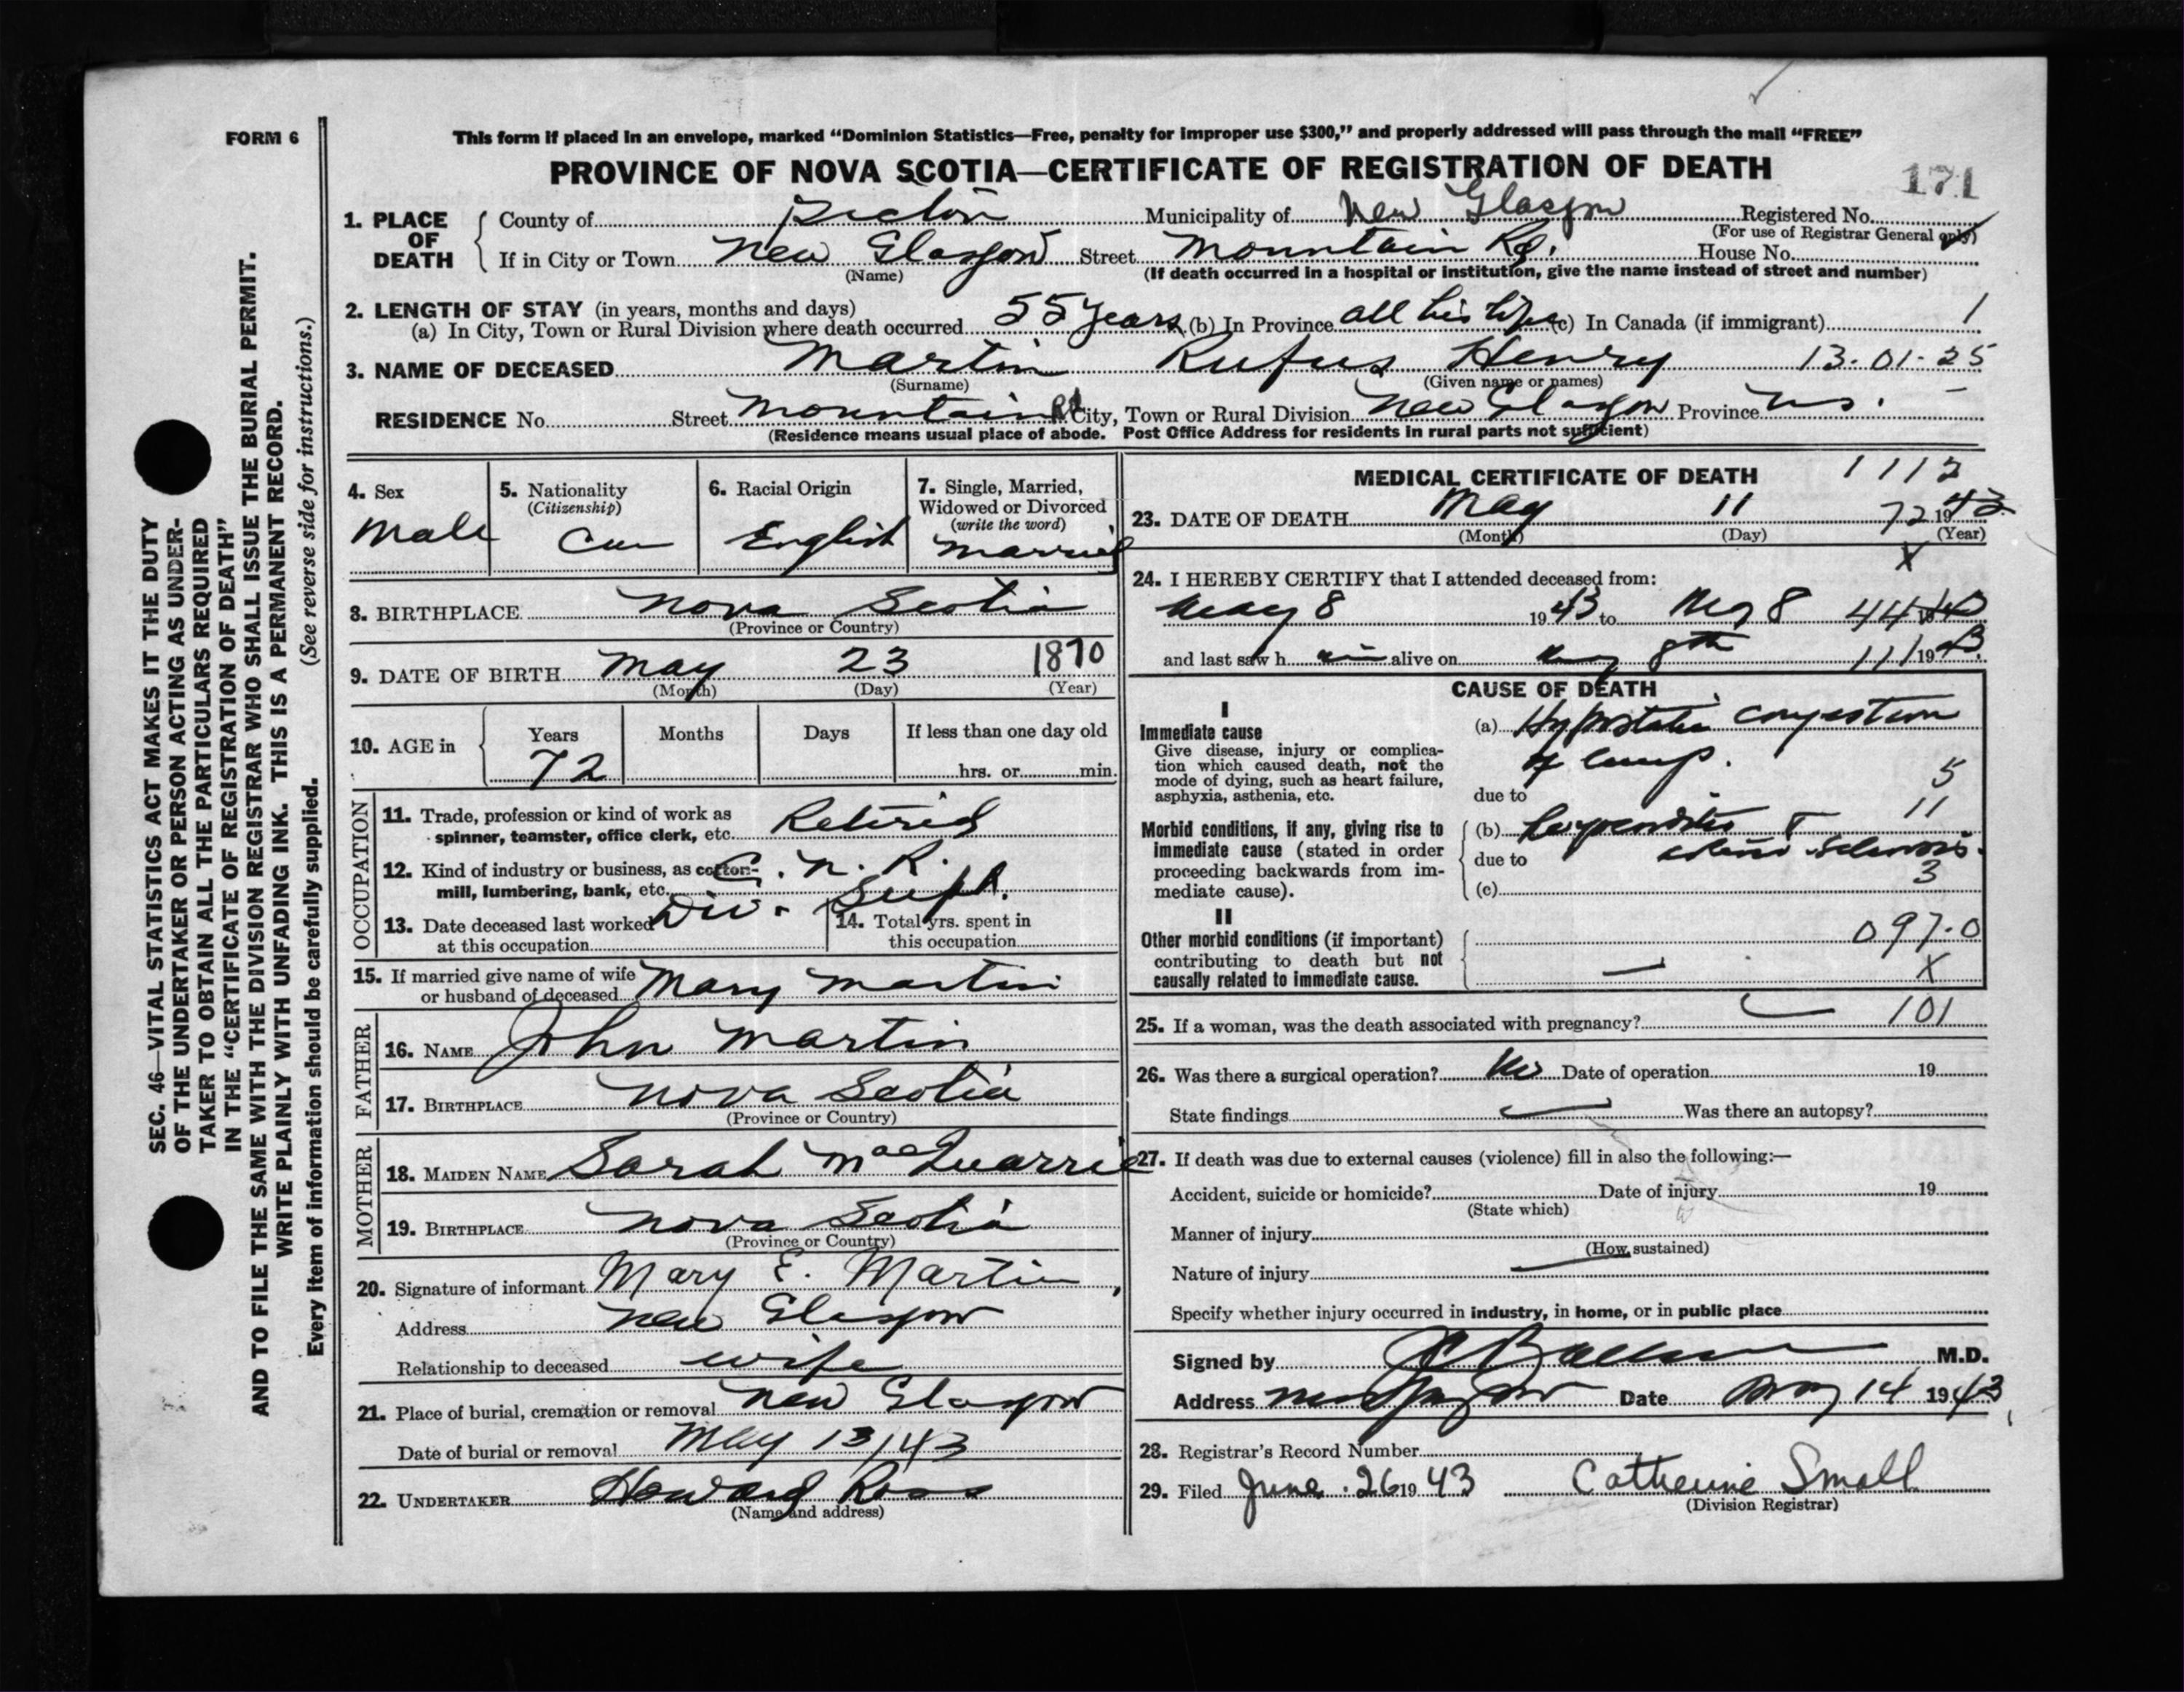 FORM 6
This form if placed in an envelope, marked “Dominion Statistics—Free, penalty for improper use $300,” and properly addressed will pass through the mail “FREE”
PROVINCE OF NOVA SCOTIA—CERTIFICATE OF REGISTRATION OF DEATH
171
1. PLACE OF DEATH
County of Pictou Municipality of New Glasgow Registered No.
(For use of Registrar General only)
If in City or Town New Glasgow Street Mountain Rd. House No.
(Name) (If death occurred in a hospital or institution, give the name instead of street and number)
2. LENGTH OF STAY (in years, months and days)
(a) In City, Town or Rural Division where death occurred 55 years (b) In Province all his life (c) In Canada (if immigrant) 1
3. NAME OF DECEASED Martin Rufus Henry 13-01-25
(Surname) (Given name or names)
RESIDENCE No. Street Mountain Rd City, Town or Rural Division New Glasgow Province N.S.
(Residence means usual place of abode. Post Office Address for residents in rural parts not sufficient)
SEC. 46—VITAL STATISTICS ACT MAKES IT THE DUTY
OF THE UNDERTAKER OR PERSON ACTING AS UNDER-
TAKER TO OBTAIN ALL THE PARTICULARS REQUIRED
IN THE “CERTIFICATE OF REGISTRATION OF DEATH”
AND TO FILE THE SAME WITH THE DIVISION REGISTRAR WHO SHALL ISSUE THE BURIAL PERMIT.
WRITE PLAINLY WITH UNFADING INK. THIS IS A PERMANENT RECORD.
Every item of information should be carefully supplied. (See reverse side for instructions.)
4. Sex
Male
5. Nationality
(Citizenship)
Can
6. Racial Origin
English
7. Single, Married,
Widowed or Divorced
(write the word)
Married
8. BIRTHPLACE Nova Scotia
(Province or Country)
9. DATE OF BIRTH May 23 1870
(Month) (Day) (Year)
10. AGE in
Years Months Days If less than one day old
72 hrs. or min.
OCCUPATION
11. Trade, profession or kind of work as
spinner, teamster, office clerk, etc. Retired
12. Kind of industry or business, as cotton-
mill, lumbering, bank, etc. C. N. R.
Div. Supt.
13. Date deceased last worked
at this occupation
14. Total yrs. spent in
this occupation
15. If married give name of wife
or husband of deceased Mary Martin
FATHER
16. NAME John Martin
17. BIRTHPLACE Nova Scotia
(Province or Country)
MOTHER
18. MAIDEN NAME Sarah MacQuarrie
19. BIRTHPLACE Nova Scotia
(Province or Country)
20. Signature of informant Mary E. Martin
Address New Glasgow
Relationship to deceased wife
21. Place of burial, cremation or removal New Glasgow
Date of burial or removal May 13/43
22. UNDERTAKER Howard Ross
(Name and address)
MEDICAL CERTIFICATE OF DEATH 1112
23. DATE OF DEATH May 11 72 1943
(Month) (Day) (Year)
X
24. I HEREBY CERTIFY that I attended deceased from:
May 8 1943 to May 8 44 1943
and last saw h im alive on May 8th 111 1943.
CAUSE OF DEATH
I
Immediate cause
Give disease, injury or complica-
tion which caused death, not the
mode of dying, such as heart failure,
asphyxia, asthenia, etc.
(a) Hypostatic congestion
of lungs.
5
due to
11
Morbid conditions, if any, giving rise to
immediate cause (stated in order
proceeding backwards from im-
mediate cause).
(b)
due to arterio-sclerosis.
(c) 3
II
Other morbid conditions (if important)
contributing to death but not
causally related to immediate cause.
097.0
X
25. If a woman, was the death associated with pregnancy? 101
26. Was there a surgical operation? No Date of operation 19
State findings Was there an autopsy?
27. If death was due to external causes (violence) fill in also the following:—
Accident, suicide or homicide? Date of injury 19
(State which)
Manner of injury
(How sustained)
Nature of injury
Specify whether injury occurred in industry, in home, or in public place
Signed by M.D.
Address New Glasgow Date May 14 1943
28. Registrar's Record Number
29. Filed June 26 1943 Catherine Small
(Division Registrar)